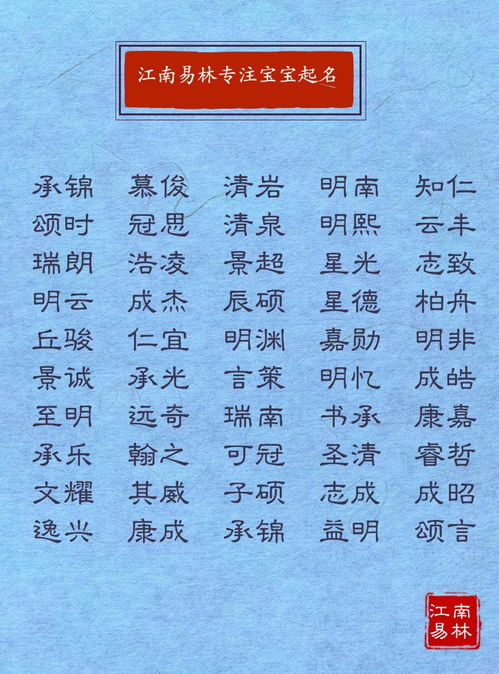 江南易林专注宝宝起名
承锦 慕俊 清岩 明南 知仁
颂时 冠思 清泉 明熙 云丰
瑞朗 浩凌 景超 星光 志致
明云 成杰 辰硕 星德 柏舟
丘骏 仁宜 明渊 嘉勋 明非
景诚 承光 言策 明忆 成皓
至明 远奇 瑞南 书承 康嘉
承乐 翰之 可冠 圣清 睿哲
文耀 其威 子硕 志成 成昭
逸兴 康成 承锦 益明 颂言
江南
易林